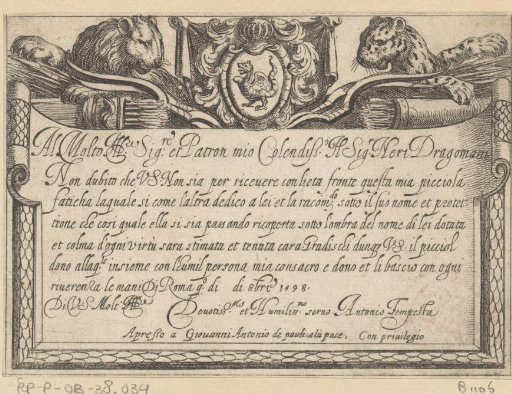 Al Molto Ill.re Sig.re et Patron mio Colendiss.o Il Sig.r Neri Dragomani
Non dubito che V.S. Non sia per riceuere con lieta fronte questa mia picciola
faticha laquale si come laltra dedico a lei et la racom.do sotto il suo nome et protet-
tione che cosi quale ella si sia passando ricoperta sotto lombra del nome di lei dotata
et colma d'ogni virtù sara stimata et tenuta cara Gradischi dunq; V.S. il picciol
dono insieme con l'humil persona mia consacro e dono et li bascio con ogni
riuerenza le mani Di Roma di di 8bre 1598.
Di V.S. Molt Ill.re Deuotiss.mo et Humiliss.mo seruo Antonio Tempesta
Apresso a Giouanni Antonio de pauli alla pace. Con priuilegio
RP-P-OB-38.034
B 1106